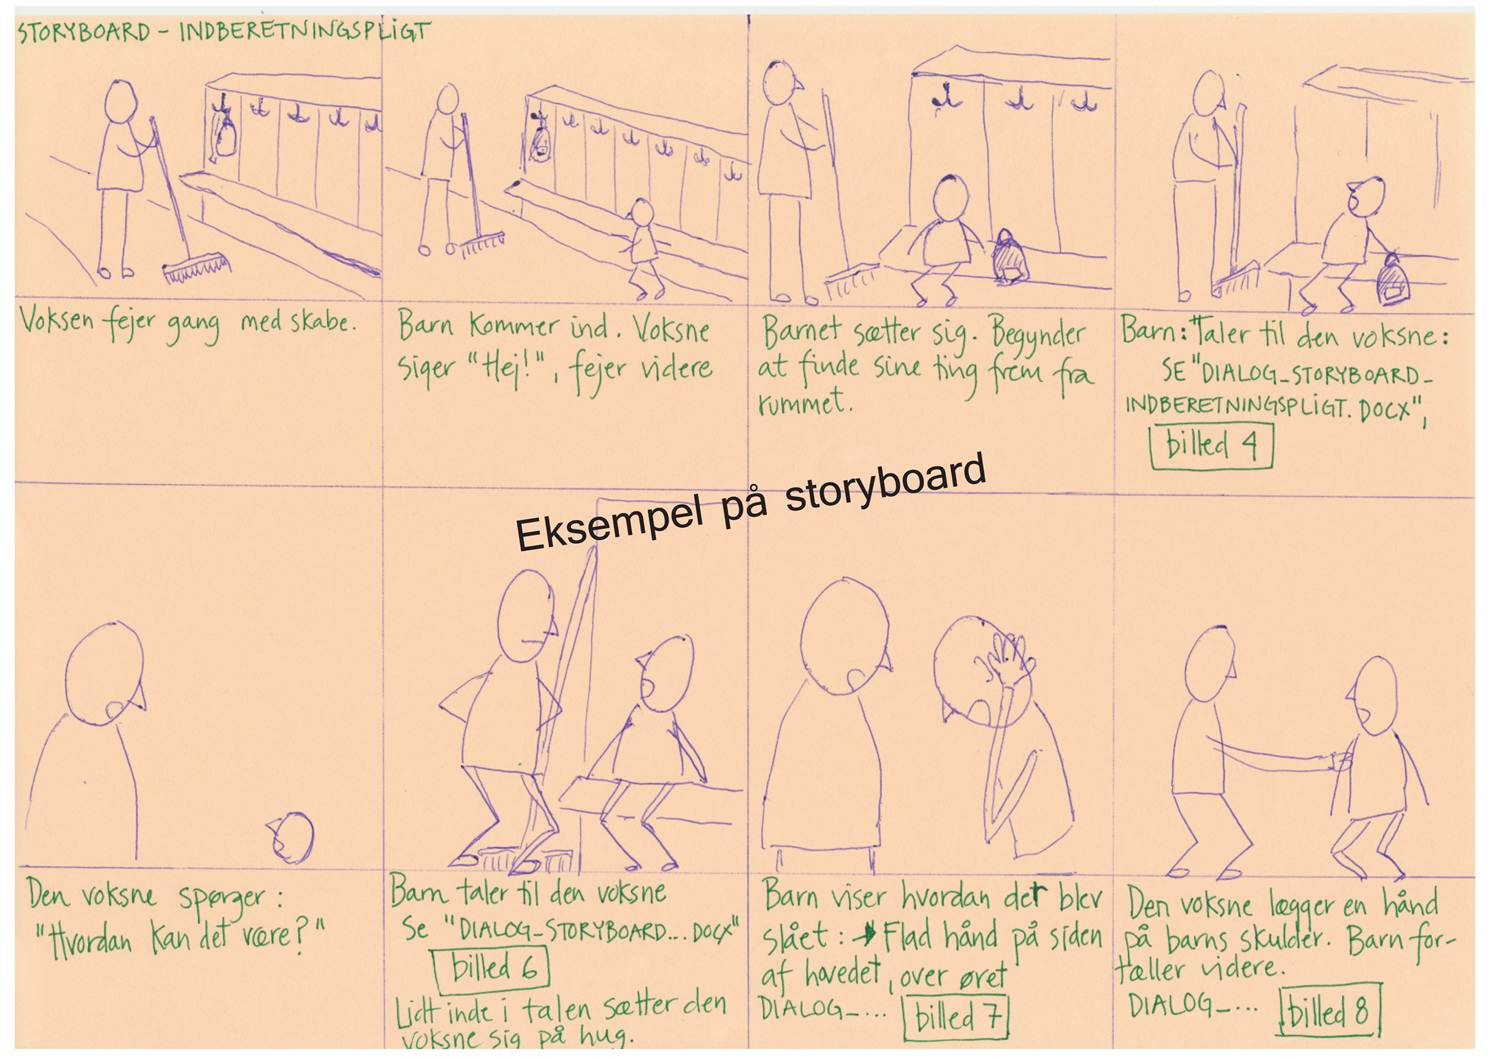 STORYBOARD - INDBERETNINGSPLIGT
Voksen fejer gang med skabe.
Barn kommer ind. Voksne
siger "Hej!", fejer videre
Barnet sætter sig. Begynder
at finde sine ting frem fra
rummet.
Barn: Taler til den voksne:
SE "DIALOG_STORYBOARD_
INDBERETNINGSPLIGT.DOCX",
billed 4
Eksempel på storyboard
Den voksne spørger:
"Hvordan kan det være?"
Barn taler til den voksne
Se "DIALOG_STORYBOARD...DOCX"
billed 6
Lidt inde i talen sætter den
voksne sig på hug.
Barn viser hvordan det blev
slået: → Flad hånd på siden
af hovedet, over øret
DIALOG_...
billed 7
Den voksne lægger en hånd
på barns skulder. Barn for-
tæller videre.
DIALOG_...
billed 8